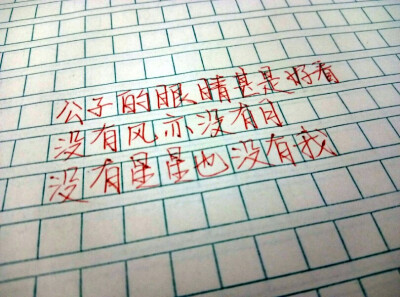 公子的眼睛甚是好看
没有风亦没有月
没有星星也没有我